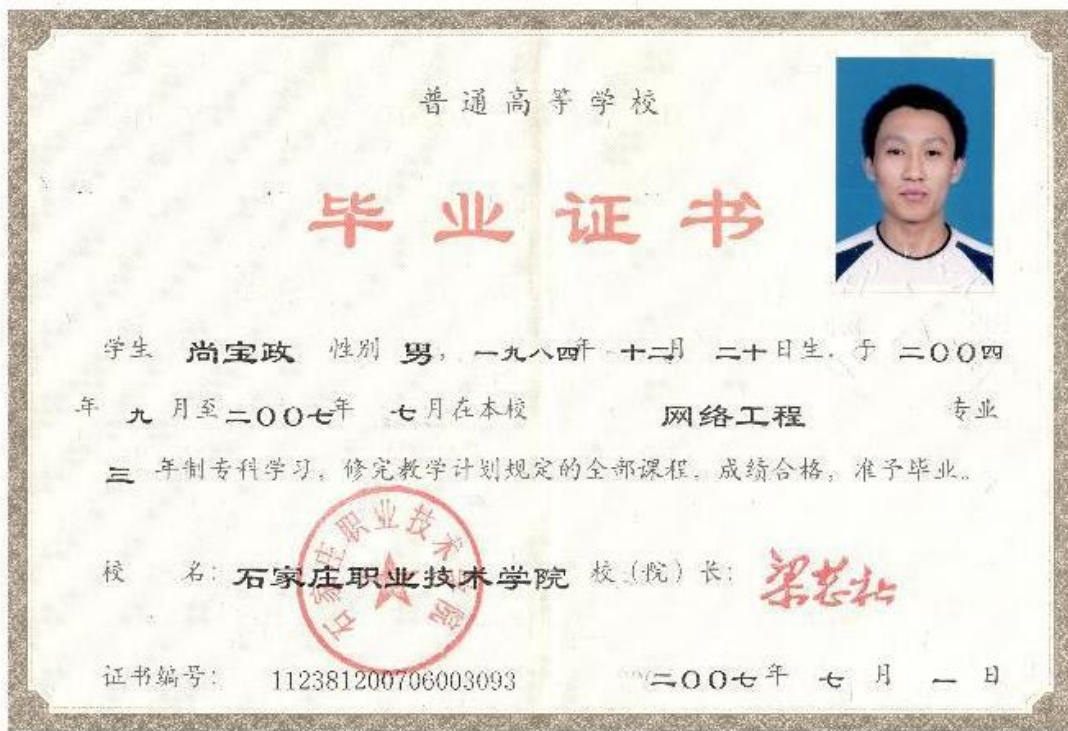 普通高等学校
毕业证书
学生 尚宝政 性别 男，一九八四年 十二月 二十日生，于 二〇〇四
年 九 月至二〇〇七年 七月在本校 网络工程 专业
三 年制专科学习，修完教学计划规定的全部课程，成绩合格，准予毕业。
校 名：石家庄职业技术学院 校（院）长：
石家庄职业技术学院
证书编号：112381200706003093 二〇〇七年 七 月 一 日